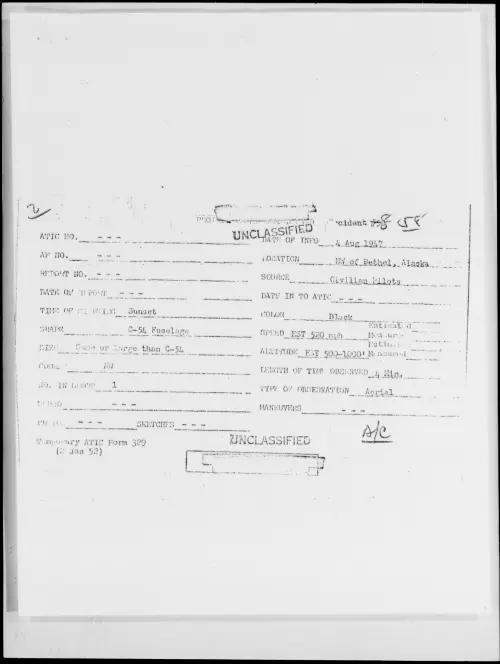 2
Incident 58
UNCLASSIFIED
ATIC NO. - - - DATE OF INFO 4 Aug 1947
AF NO. - - - LOCATION NW of Bethel, Alaska
REPORT NO. - - - SOURCE Civilian Pilots
DATE OF REPORT - - - DATE IN TO ATIC - - -
TIME OF SIGHTING Sunset COLOR Black
SHAPE C-54 Fuselage SPEED EST 520 mph
SIZE Same or Large than C-54 ALTITUDE EST 500-1000' Measured
COURSE NW LENGTH OF TIME OBSERVED 4 Min.
NO. IN GROUP 1 TYPE OF OBSERVATION Aerial
SOUND - - - MANEUVERS - - -
- - - SKETCHES - - -
A/C
Temporary ATIC Form 329
(2 Jan 52)
UNCLASSIFIED